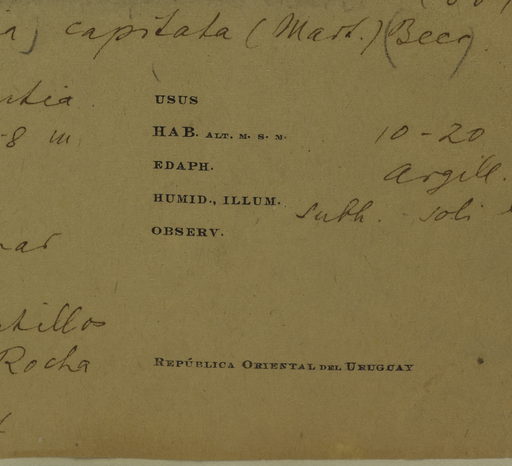 capitata (Mart.) (Becc.
USUS
-8 m HAB. ALT. M. S. M. 10-20
EDAPH. Argill.
HUMID., ILLUM. subh. - soli
OBSERV.
tillos
Rocha REPÚBLICA ORIENTAL DEL URUGUAY